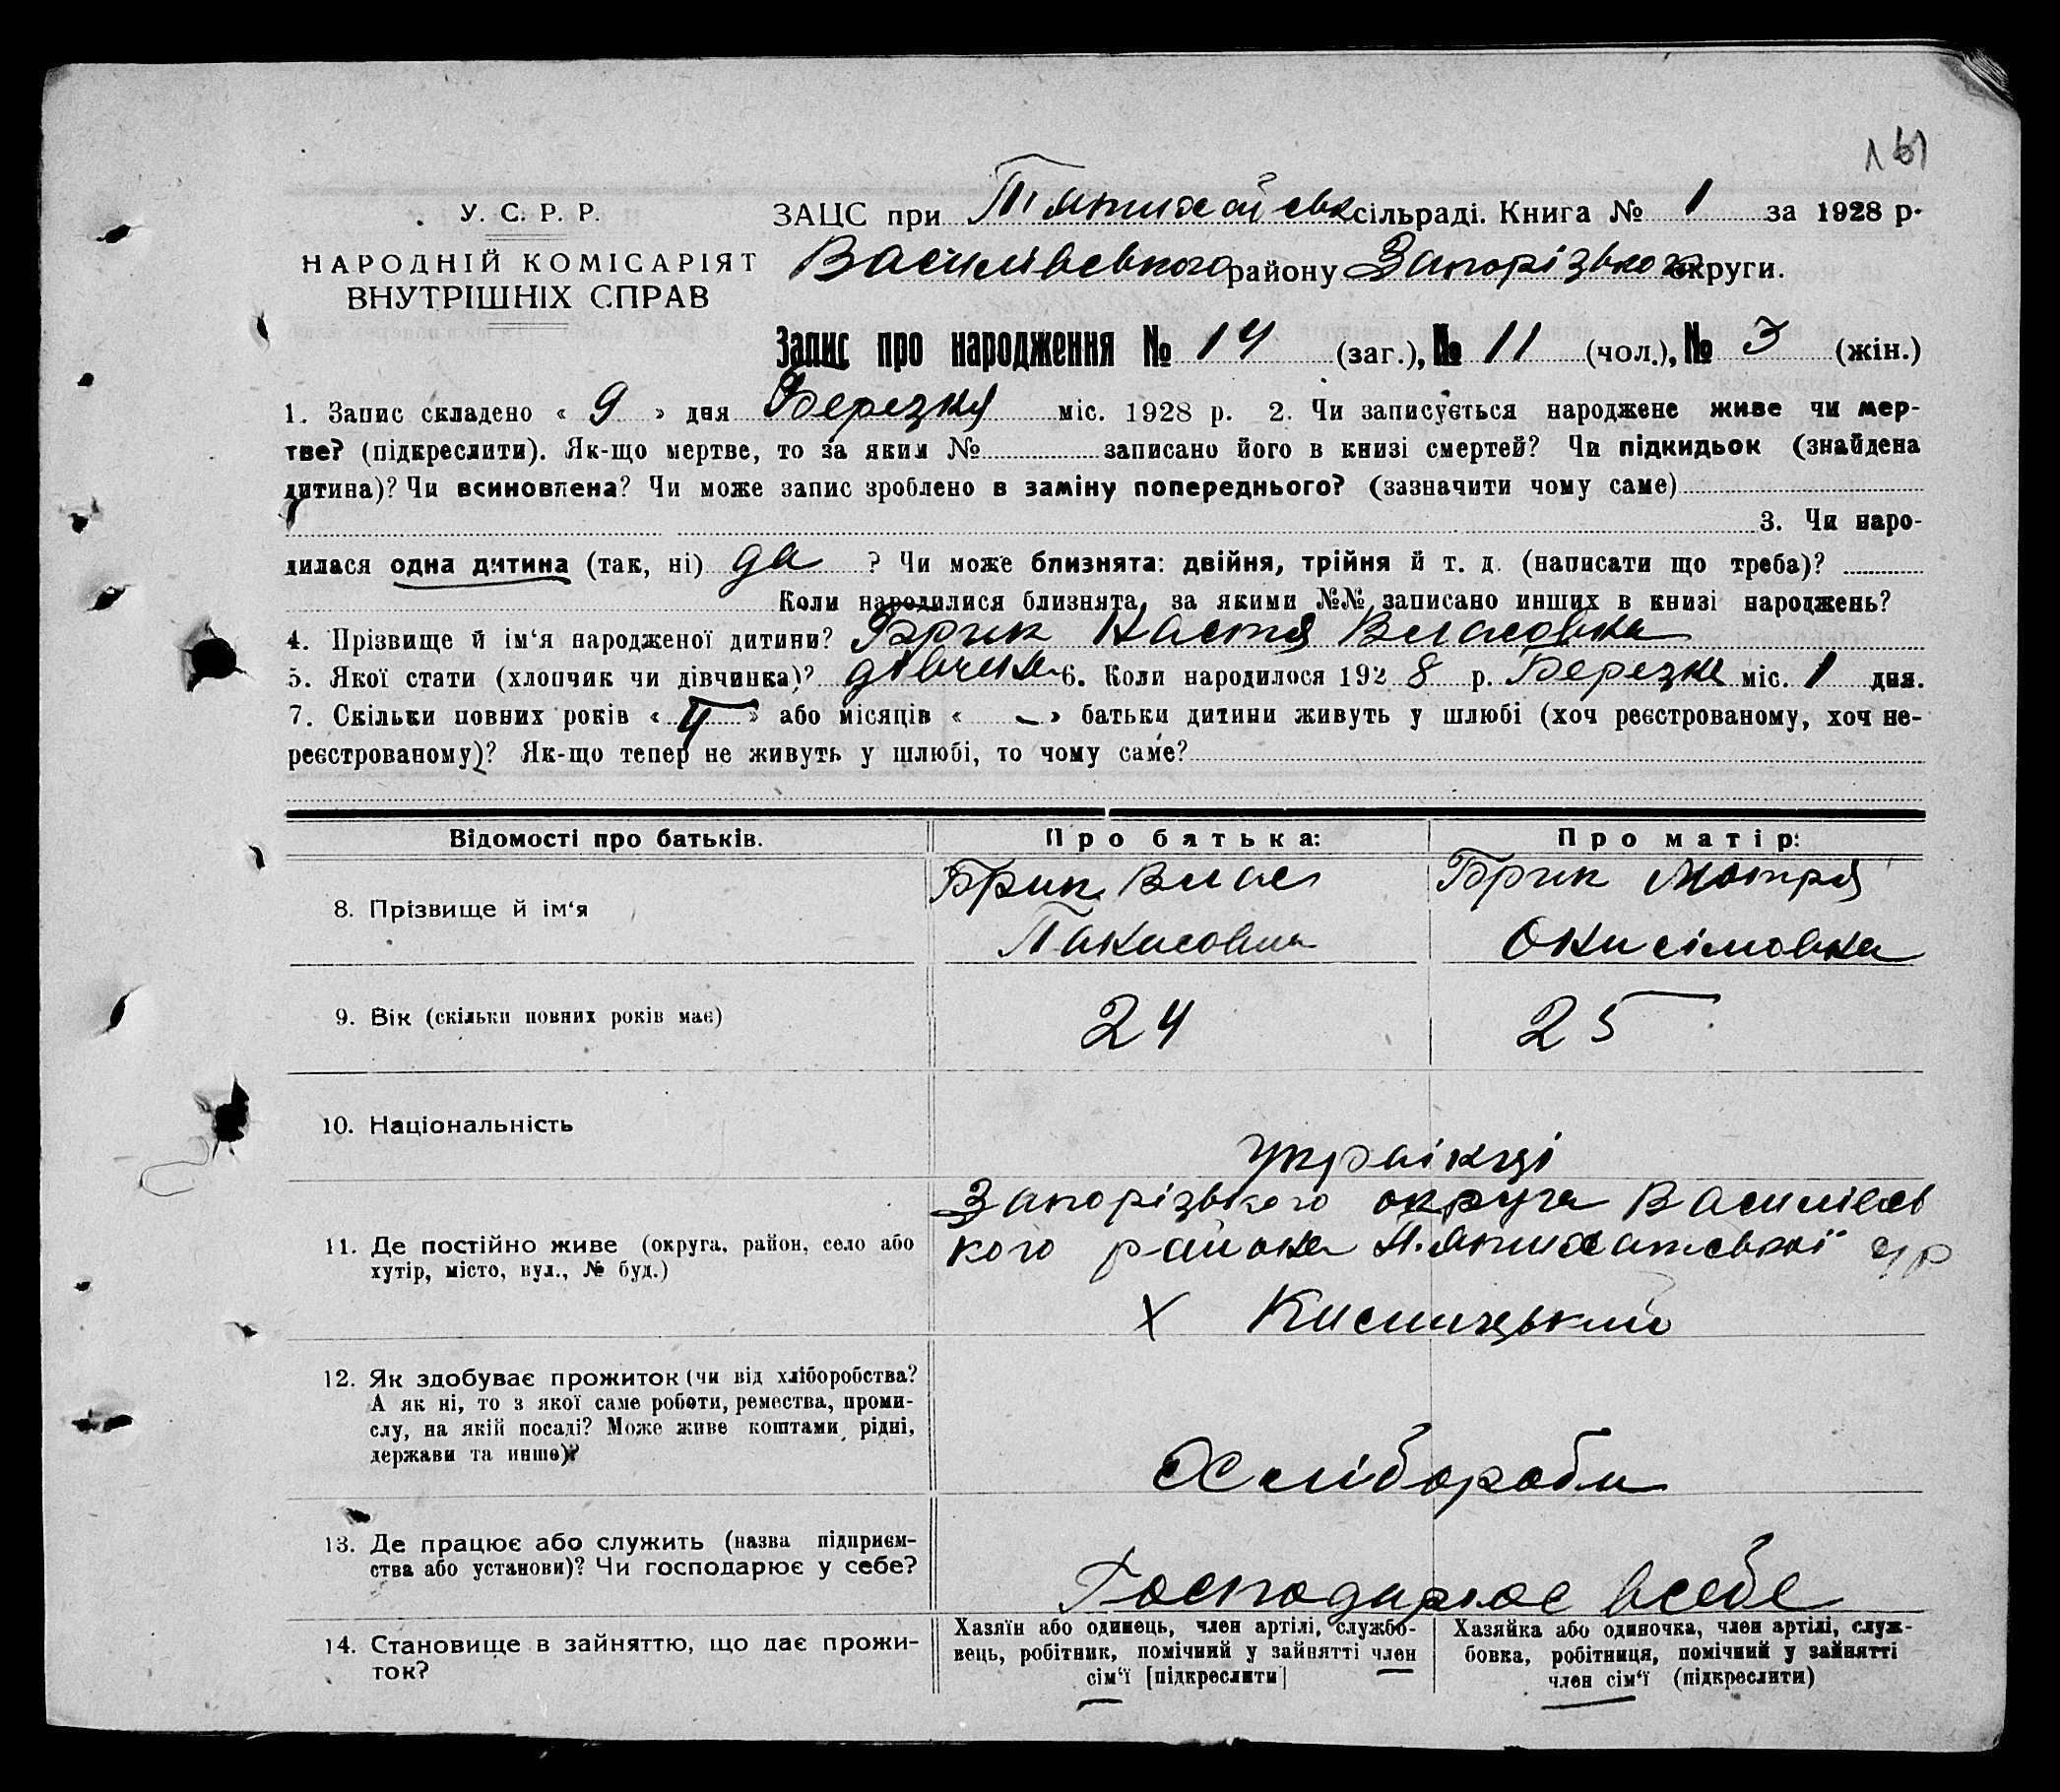 161
У. С. Р. Р.
НАРОДНІЙ КОМІСАРІЯТ
ВНУТРІШНІХ СПРАВ
ЗАЦС при П'ятихатськ сільраді. Книга № 1 за 1928 р.
Василівського району Запорізької округи.
Запис про народження № 14 (заг.), № 11 (чол.), № 3 (жін.)
1. Запис складено « 9 » дня Березня міс. 1928 р. 2. Чи записується народжене живе чи мер-
тве? (підкреслити). Як-що мертве, то за яким № записано його в книзі смертей? Чи підкидьок (знайдена
дитина)? Чи всиновлена? Чи може запис зроблено в заміну попереднього? (зазначити чому саме)
3. Чи наро-
дилася одна дитина (так, ні) да ? Чи може близнята: двійня, трійня й т. д. (написати що треба)?
Коли народилися близнята, за якими №№ записано инших в книзі народжень?
4. Прізвище й ім‘я народженої дитини? Брик Настя Власовна
5. Якої стати (хлопчик чи дівчинка)? дівчин 6. Коли народилося 1928 р. Березня міс. 1 дня.
7. Скільки повних років « 4 » або місяців « - » батьки дитини живуть у шлюбі (хоч реєстрованому, хоч не-
реєстрованому)? Як-що тепер не живуть у шлюбі, то чому саме?
Відомості про батьків.
Про батька:
Про матір:
8. Прізвище й ім‘я
Брик Влас
Брик Мотря
Онисімовна
9. Вік (скільки повних років має)
24
25
10. Національність
українці
11. Де постійно живе (округа, район, село або
хутір, місто, вул., № буд.)
Запорізького округа Василівсь
кого района П.ятихатської с/р
х Кисличський
12. Як здобуває прожиток (чи від хліборобства?
А як ні, то з якої саме роботи, ремества, проми-
слу, на якій посаді? Може живе коштами рідні,
держави та инше)?
Хлібороби
13. Де працює або служить (назва підприєм-
ства або установи)? Чи господарює у себе?
Господарює всебе
14. Становище в зайняттю, що дає прожи-
ток?
Хазяїн або одинець, член артілі, службо-
вець, робітник, помічний у зайнятті член
сім‘ї [підкреслити]
Хазяйка або одиночка, член артілі, служ-
бовка, робітниця, помічний у зайнятті
член сім‘ї (підкреслити)